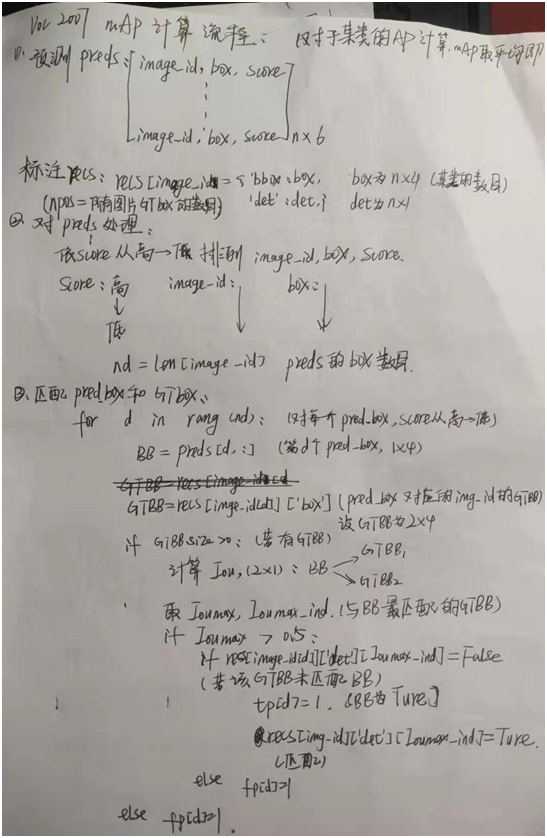 Voc 2007 mAp 计算流程: 仅对于某类的AP计算.mAp取平均即
①. 预测 preds: [image_id, box, score
image_id, box, score] n×6
标注recs: recs[image_id = {'bbox':box, box为n×4 (某类的数目)
(npos=所有图片GTbox的数目) 'det':det,} det为n×1
② 对preds处理:
依score从高→低 排列 image_id, box, score.
score: 高 image_id: box:
低
nd = len[image_id) preds的box数目.
③. 匹配pred_box和GTbox.
for d in rang (nd): (对每个pred_box, score从高→低)
BB = preds[d, :] (第d个pred_box, 1×4)
GTBB=recs[image_id[d
GTBB=recs[imge_id[d]]['box'] (pred_box对应的img_id的GTBB)
设GTBB为2×4
if GTBBsize>0: (若有GTBB)
计算 Iou, (2×1): BB GTBB1
GTBB2
取Ioumax, Ioumax_ind. (与BB最匹配的GTBB)
if Ioumax > 0.5:
if recs[image_id[d]]['det'][Ioumax_ind]=False
(若该GTBB未匹配BB)
tp[d]=1. 设BB为Ture.
recs[img-id]['det'][Ioumax_ind]=Ture.
(匹配)
else fp[d]=1
else fp[d]=1.